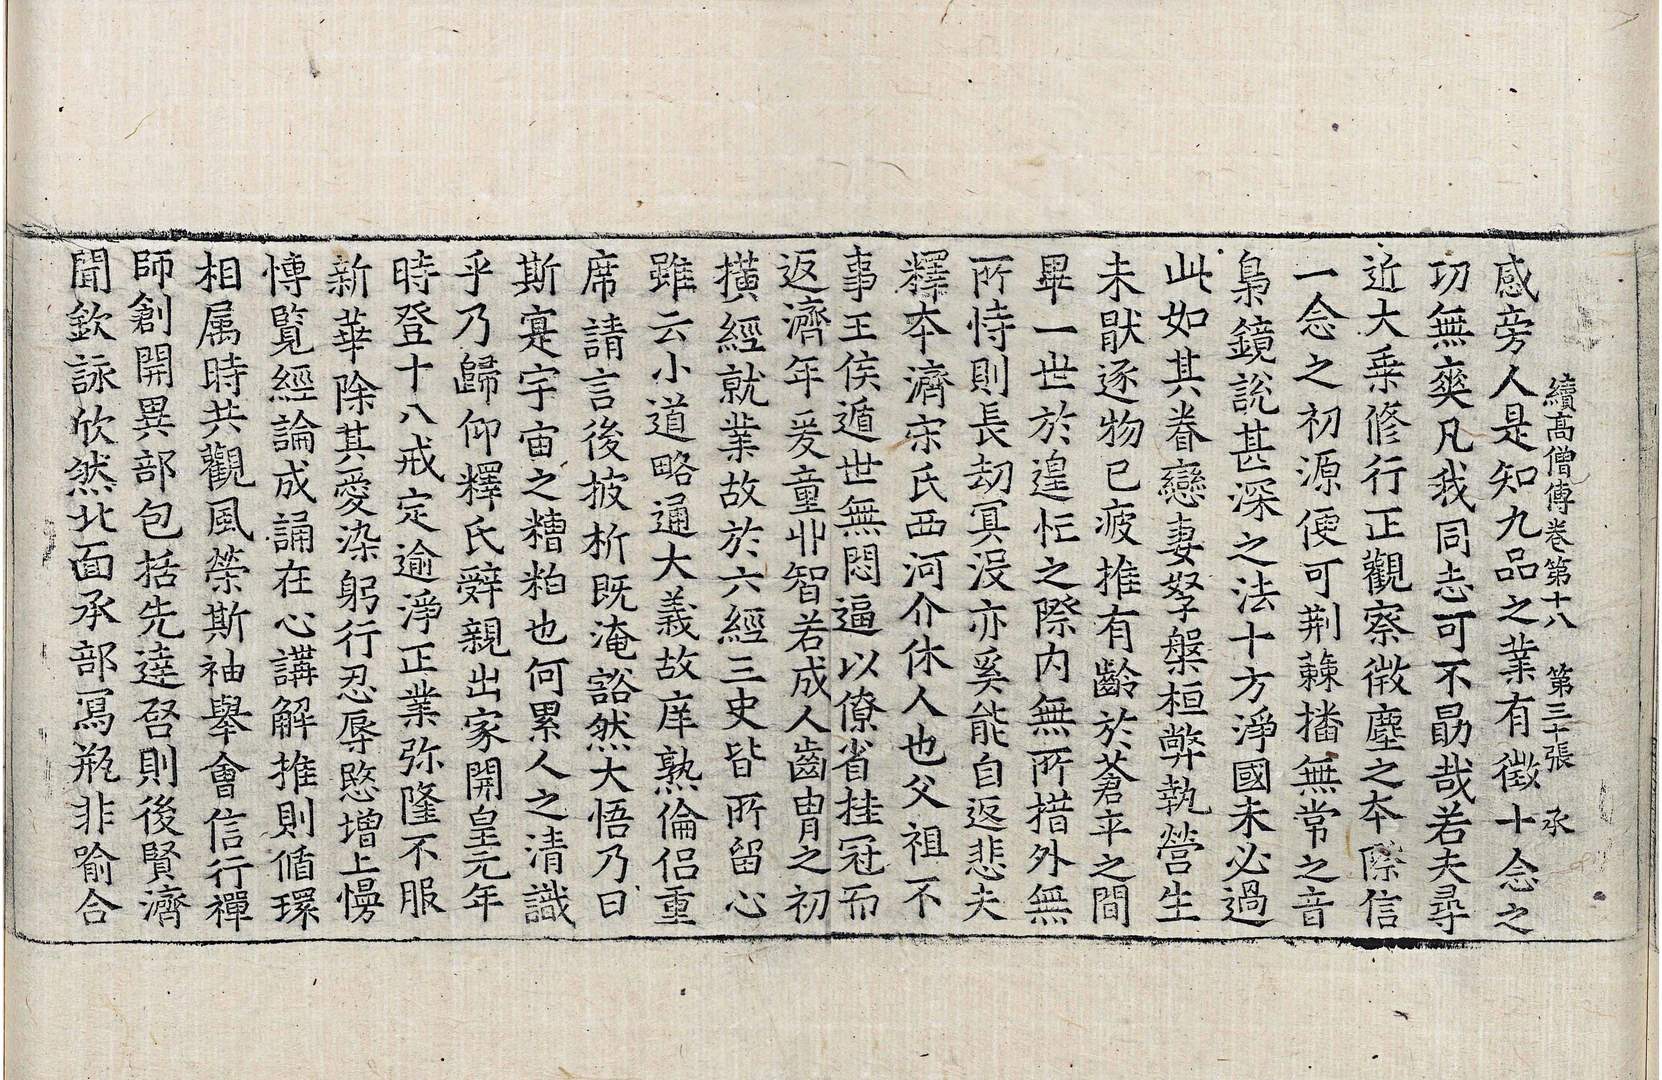 續高僧傳卷第十八　第三十張　承
感旁人是知九品之業有徵十念之
功無爽凡我同志可不勗哉若夫尋
近大乘修行正觀察微塵之本際信
一念之初源便可荆蕀播無常之音
梟鏡說甚深之法十方淨國未必過
此如其眷戀妻孥槃桓弊執營生
未猒逐物已疲摧有齡於蒼卒之間
畢一世於遑忙之際內無所措外無
所恃則長劫冥沒亦奚能自返悲夫
釋本濟宋氏西河介休人也父祖不
事王侯遁世無悶逼以僚省挂冠而
返濟年爰童丱智若成人齒胄之初
橫經就業故於六經三史皆所留心
雖云小道略通大義故庠熟倫侶重
席請言後披析既淹豁然大悟乃曰
斯寔宇宙之糟粕也何累人之清識
乎乃歸仰釋氏辤親出家開皇元年
時登十八戒定逾淨正業弥隆不服
新華除其愛染躬行忍辱愍增上慢
愽覽經論成誦在心講解推則循環
相属時共觀風榮斯袖舉會信行禪
師創開異部包括先達啓則後賢濟
聞欽詠欣然北面承部寫瓶非喻合